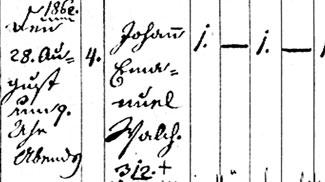 1862.
den
28. Au=
gust
um 9.
Uhr
Abends
4.
Johan̅
Ema=
nuel
Walch.
312.+
1. — 1. —